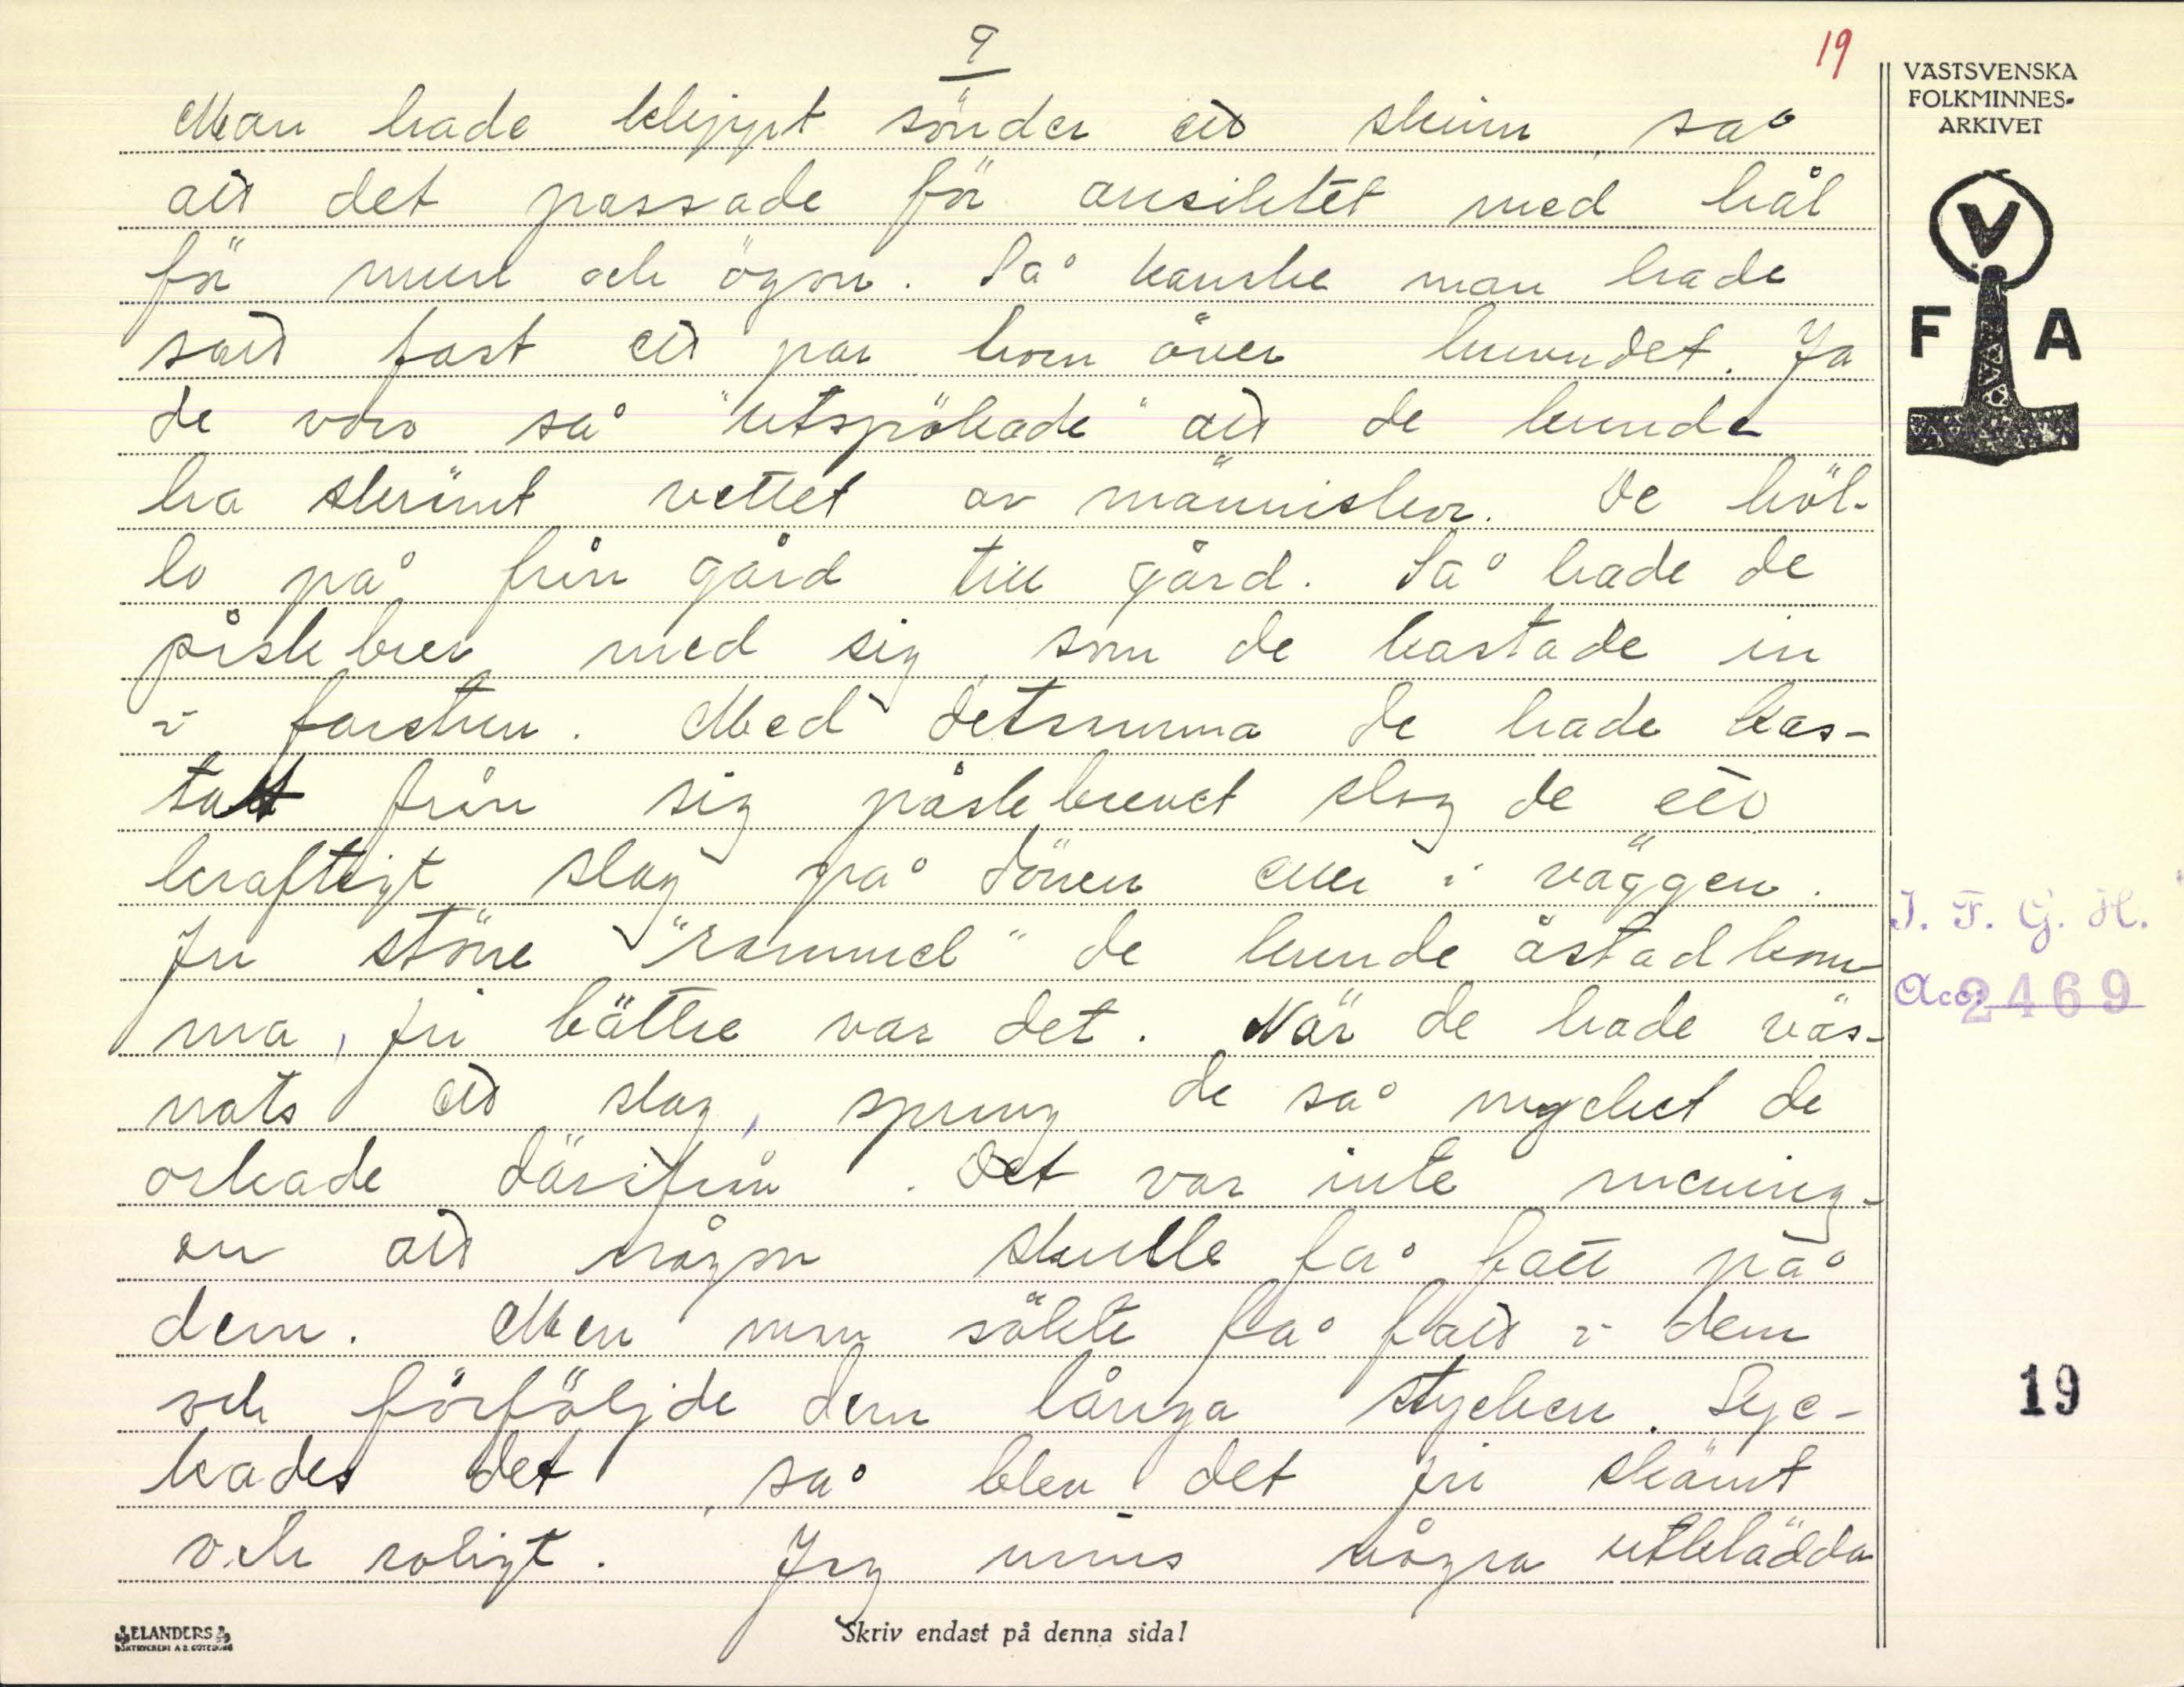 9
19
Man hade klippt sönder ett skinn, så
att det passade för ansiktet med hål
för mun och ögon. Så kanske man hade
satt fast ett par horn över huvudet. Ja
de voro så "utspökade" att de kunde
ha skrämt vettet av människor. De höl-
lo på från gård till gård. Så hade de
påskbrev med sig, som de kastade in
i farstun. Med detsamma de hade kas-
tat från sig påskbrevet slog de ett
kraftigt slag på dörren eller i väggen.
Ju större "rammel" de kunde åstadkom-
ma, ju bättre var det. När de hade väs-
nats ett slag, sprung de så mycket de
orkade därifrån. Det var inte mening-
en att någon skulle få fatt på
dem. Men man sökte få fatt i dem
och förföljde dem långa stycken. Lyc-
kades det, så blev det ju skämt
och roligt. Jag minns några utklädda
VÄSTSVENSKA
FOLKMINNES-
ARKIVET
V
F A
I. F. G. H.
Acc. 2469
19
ELANDERS
BOKTRYCKERI A.B. GÖTEBORG
Skriv endast på denna sida!